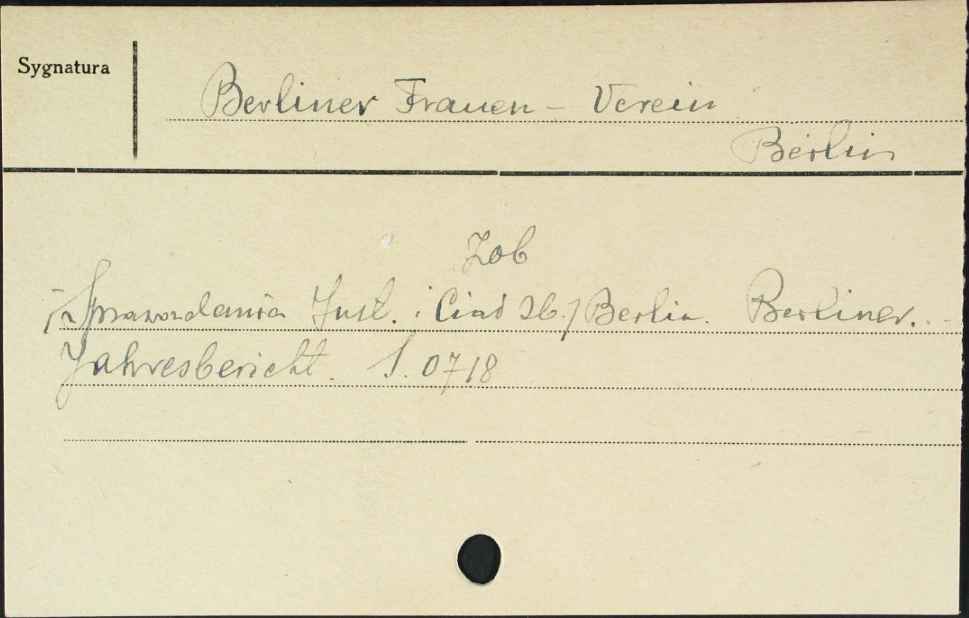 Sygnatura
Berliner Frauen - Verein
Berlin
Zob
[Sprawozdania Inst. i Ciał Zb.] Berlin. Berliner. -
Jahresbericht. S. 0718